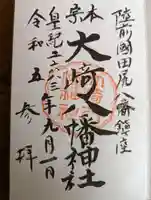 陸前國田尻八幡鎮座
本宗
大崎八幡神社
皇紀二六八三年九月一日
令和五
参拝